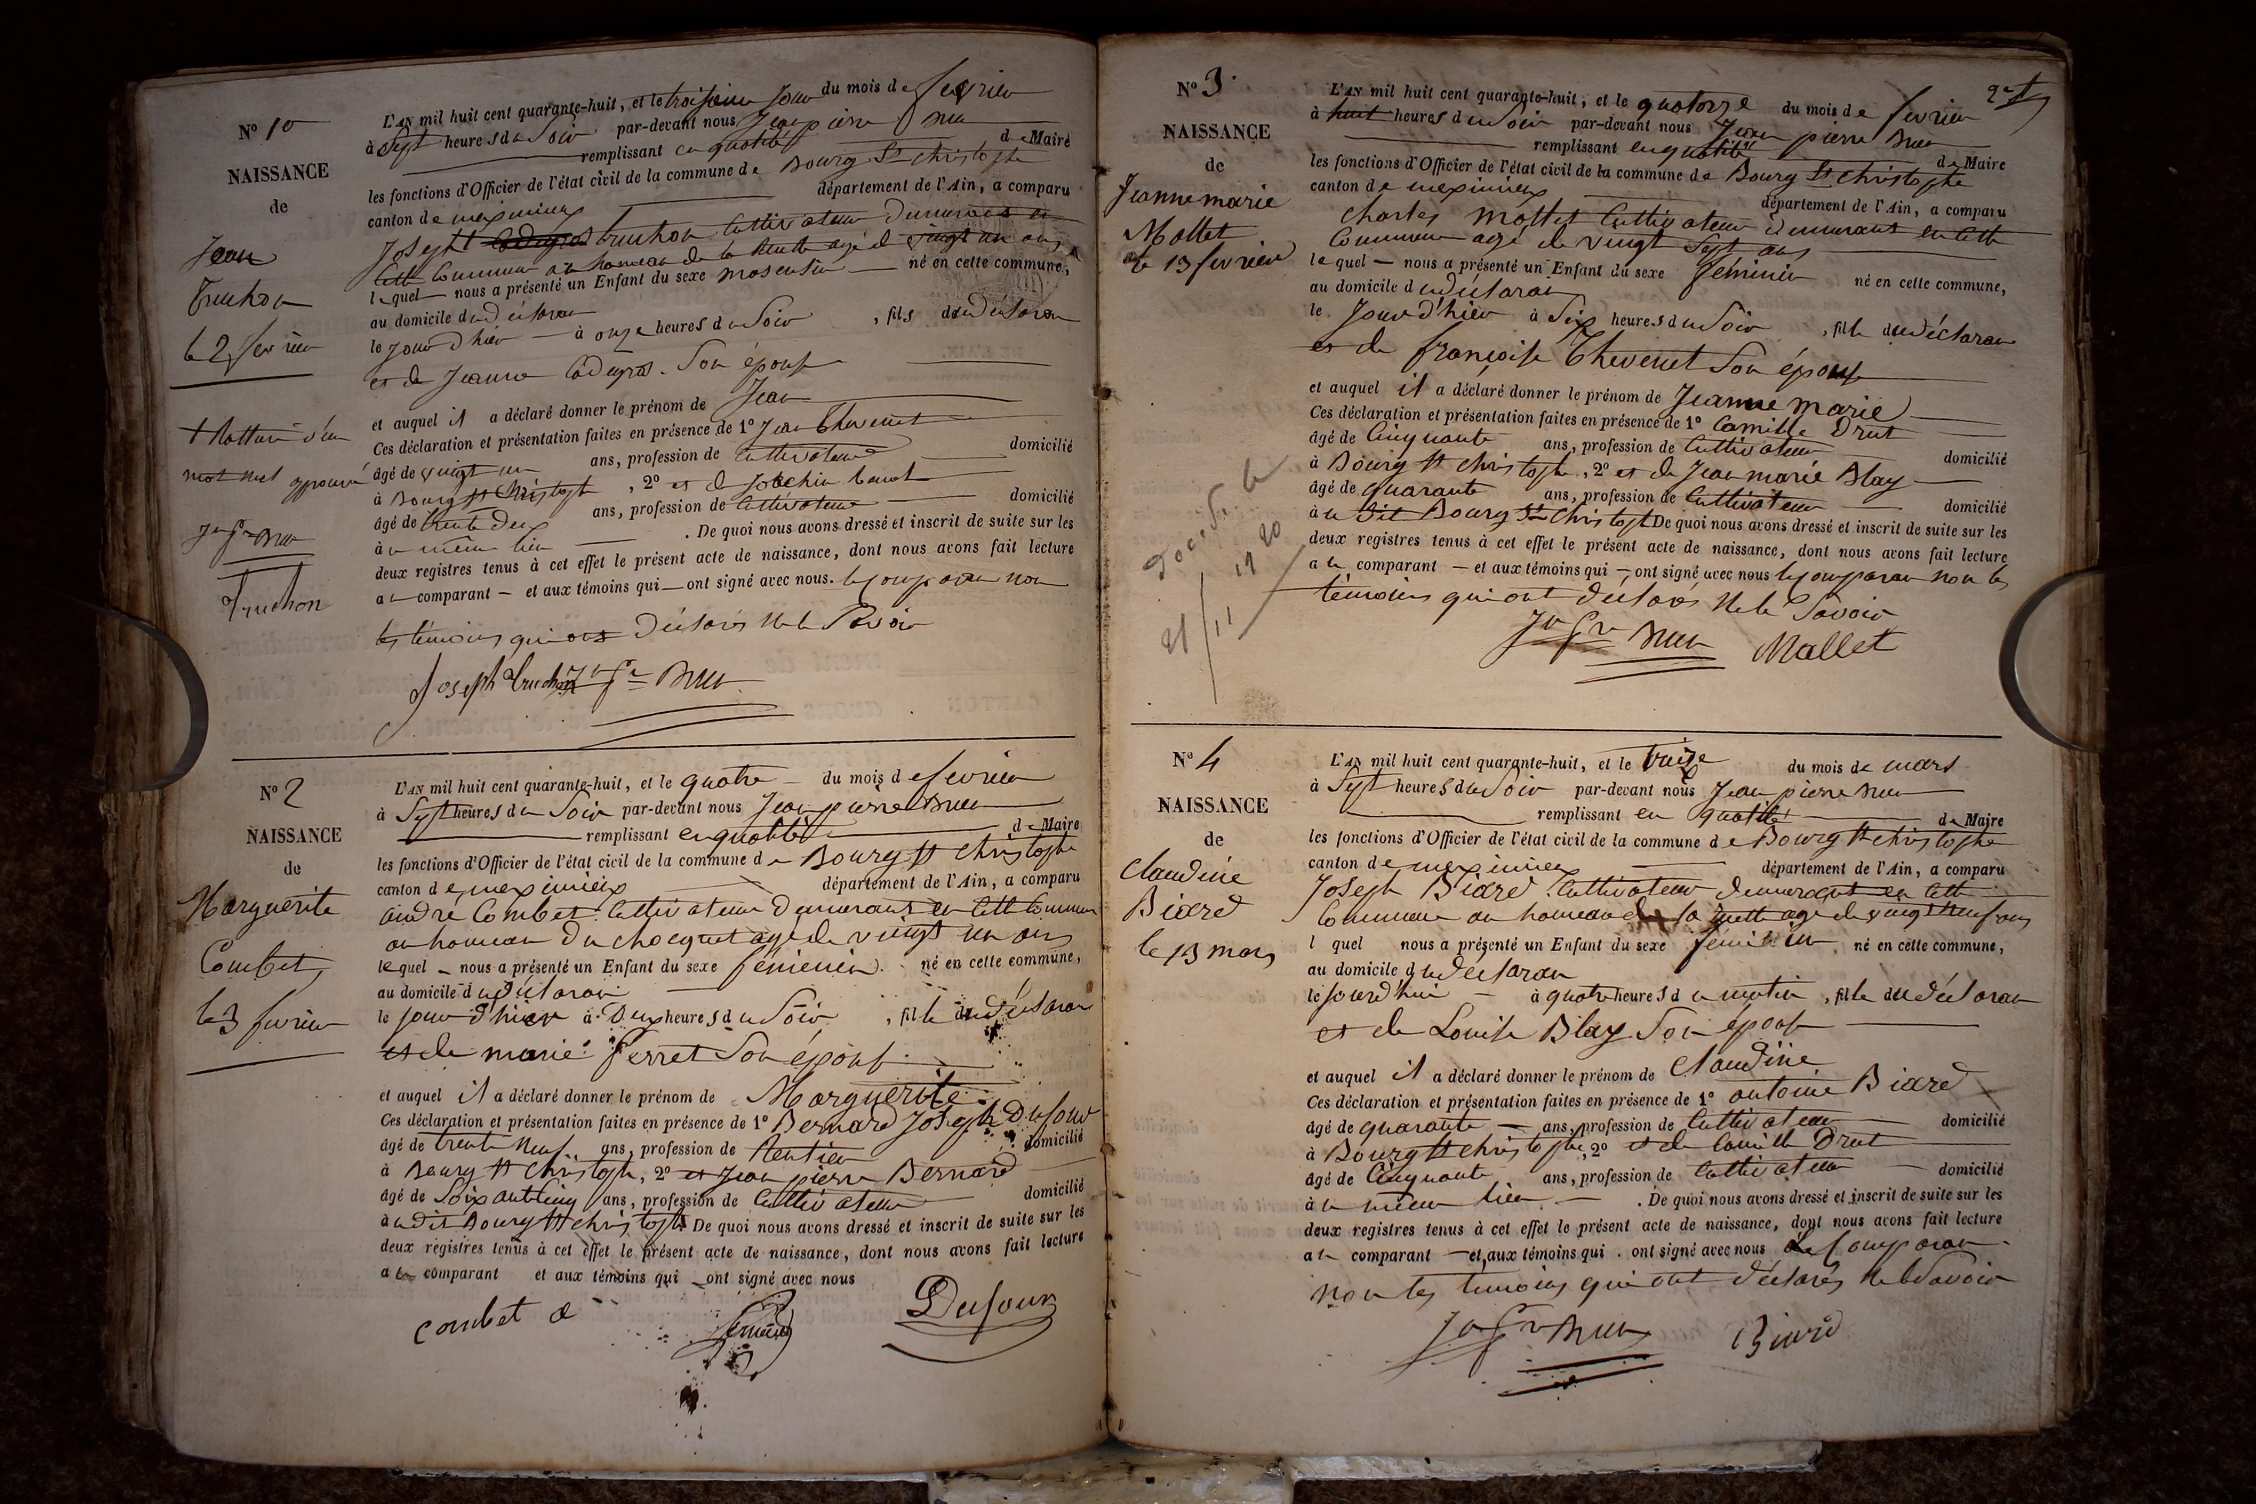 No 1er
NAISSANCE
de
Jean
Truchon
le 2 fevrier
+ Rature d'un
mot nul approuvé
Jn Pre Brun
Truchon
L'AN mil huit cent quarante-huit, et le troisieme Jour du mois de fevrier
à Sept heures du Soir par-devant nous Jean pierre
remplissant en qualité de Maire
les fonctions d'Officier de l'état civil de la commune de Bourg St Christophe
canton de meximieux département de l'Ain, a comparu
Joseph Truchon Cultivateur Demeurant en
Cette Commune au hameau de la agé de vingt un ans
lequel nous a présenté un Enfant du sexe masculin né en cette commune,
au domicile du déclarant
le jour d'hier à onze heures du Soir, fils du déclarant
et de Jeanne Son épouse
et auquel il a déclaré donner le prénom de Jean
Ces déclaration et présentation faites en présence de 1º Jean Thevenet
âgé de vingt un ans, profession de Cultivateur domicilié
à Bourg St Christophe, 2º et de Joachin
âgé de trente Deux ans, profession de Cultivateur domicilié
à u même lieu . De quoi nous avons dressé et inscrit de suite sur les
deux registres tenus à cet effet le présent acte de naissance, dont nous avons fait lecture
au comparant et aux témoins qui ont signé avec nous. le Comparant non
les témoins qui ont Déclarés Ne le Savoir
Joseph Truchon Jn Pre
No 2
NAISSANCE
de
Marguerite
Combet
le 3 fevrier
L'AN mil huit cent quarante-huit, et le quatre du mois de fevrier
à Sept heures du Soir par-devant nous Jean pierre
remplissant en qualité de Maire
les fonctions d'Officier de l'état civil de la commune de Bourg St Christophe
canton de meximieux département de l'Ain, a comparu
andré Combet Cultivateur Demeurant en Cette Commune
au hameau Du chocquet agé de vingt un ans
lequel nous a présenté un Enfant du sexe féminin né en cette commune,
au domicile du déclarant
le jour d'hier à Deux heures du Soir, fille du déclarant
et de marie ferret Son épouse
et auquel il a déclaré donner le prénom de Marguerite
Ces déclaration et présentation faites en présence de 1º Bernard Joseph Dufour
âgé de trente Neuf ans, profession de Rentier domicilié
à Bourg St Christophe, 2º et Jean pierre Bernard
âgé de Soixante Cinq ans, profession de Cultivateur domicilié
audit Bourg St Christophe De quoi nous avons dressé et inscrit de suite sur les
deux registres tenus à cet effet le présent acte de naissance, dont nous avons fait lecture
au comparant et aux témoins qui ont signé avec nous
combet a
Dufour
No 3
NAISSANCE
de
Jeanne marie
Mollet
le 13 fevrier
21/11 1920
L'AN mil huit cent quarante-huit, et le quatorze du mois de fevrier
à huit heures du Soir par-devant nous Jean pierre
remplissant en qualité de Maire
les fonctions d'Officier de l'état civil de la commune de Bourg St Christophe
canton de meximieux département de l'Ain, a comparu
Charles Mollet Cultivateur Demeurant en Cette
Commune agé de vingt Sept ans
lequel nous a présenté un Enfant du sexe féminin né en cette commune,
au domicile du déclarant
le Jour d'hier à Six heures du Soir, fille du déclarant
et de françoise Thevenet Son épouse
et auquel il a déclaré donner le prénom de Jeanne marie
Ces déclaration et présentation faites en présence de 1º Camille Drut
âgé de Cinquante ans, profession de Cultivateur domicilié
à Bourg St Christophe, 2º et de Jean marie Blay
âgé de quarante ans, profession de Cultivateur domicilié
à u Dit Bourg St Christophe De quoi nous avons dressé et inscrit de suite sur les
deux registres tenus à cet effet le présent acte de naissance, dont nous avons fait lecture
au comparant et aux témoins qui ont signé avec nous le Comparant non les
témoins qui ont Déclarés Ne le Savoir
Jn Pre Mollet
No 4
NAISSANCE
de
Claudine
Biard
le 13 mars
L'AN mil huit cent quarante-huit, et le treize du mois de mars
à Sept heures du Soir par-devant nous Jean pierre
remplissant en qualité de Maire
les fonctions d'Officier de l'état civil de la commune de Bourg St Christophe
canton de meximieux département de l'Ain, a comparu
Joseph Biard Cultivateur Demeurant en Cette
Commune au hameau de la agé de vingt Neuf ans
l quel nous a présenté un Enfant du sexe féminin né en cette commune,
au domicile du déclarant
le Jourd'hui à quatre heures du matin, fille du déclarant
et de Louise Blay Son épouse
et auquel il a déclaré donner le prénom de Claudine
Ces déclaration et présentation faites en présence de 1º antoine Biard
âgé de quarante ans, profession de Cultivateur domicilié
à Bourg St Christophe, 2º et de Camille Drut
âgé de Cinquante ans, profession de Cultivateur domicilié
à u même lieu . De quoi nous avons dressé et inscrit de suite sur les
deux registres tenus à cet effet le présent acte de naissance, dont nous avons fait lecture
au comparant et aux témoins qui ont signé avec nous Le Comparant
non les témoins qui ont déclarés Ne le Savoir
Jn Pre Biard